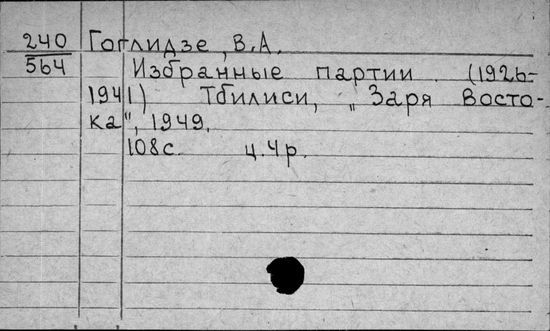 240 Гоглидзе, В.А.
564 Избранные партии. (1926-
1941) Тбилиси, „Заря Восто-
ка", 1949.
108с. ц.4р.